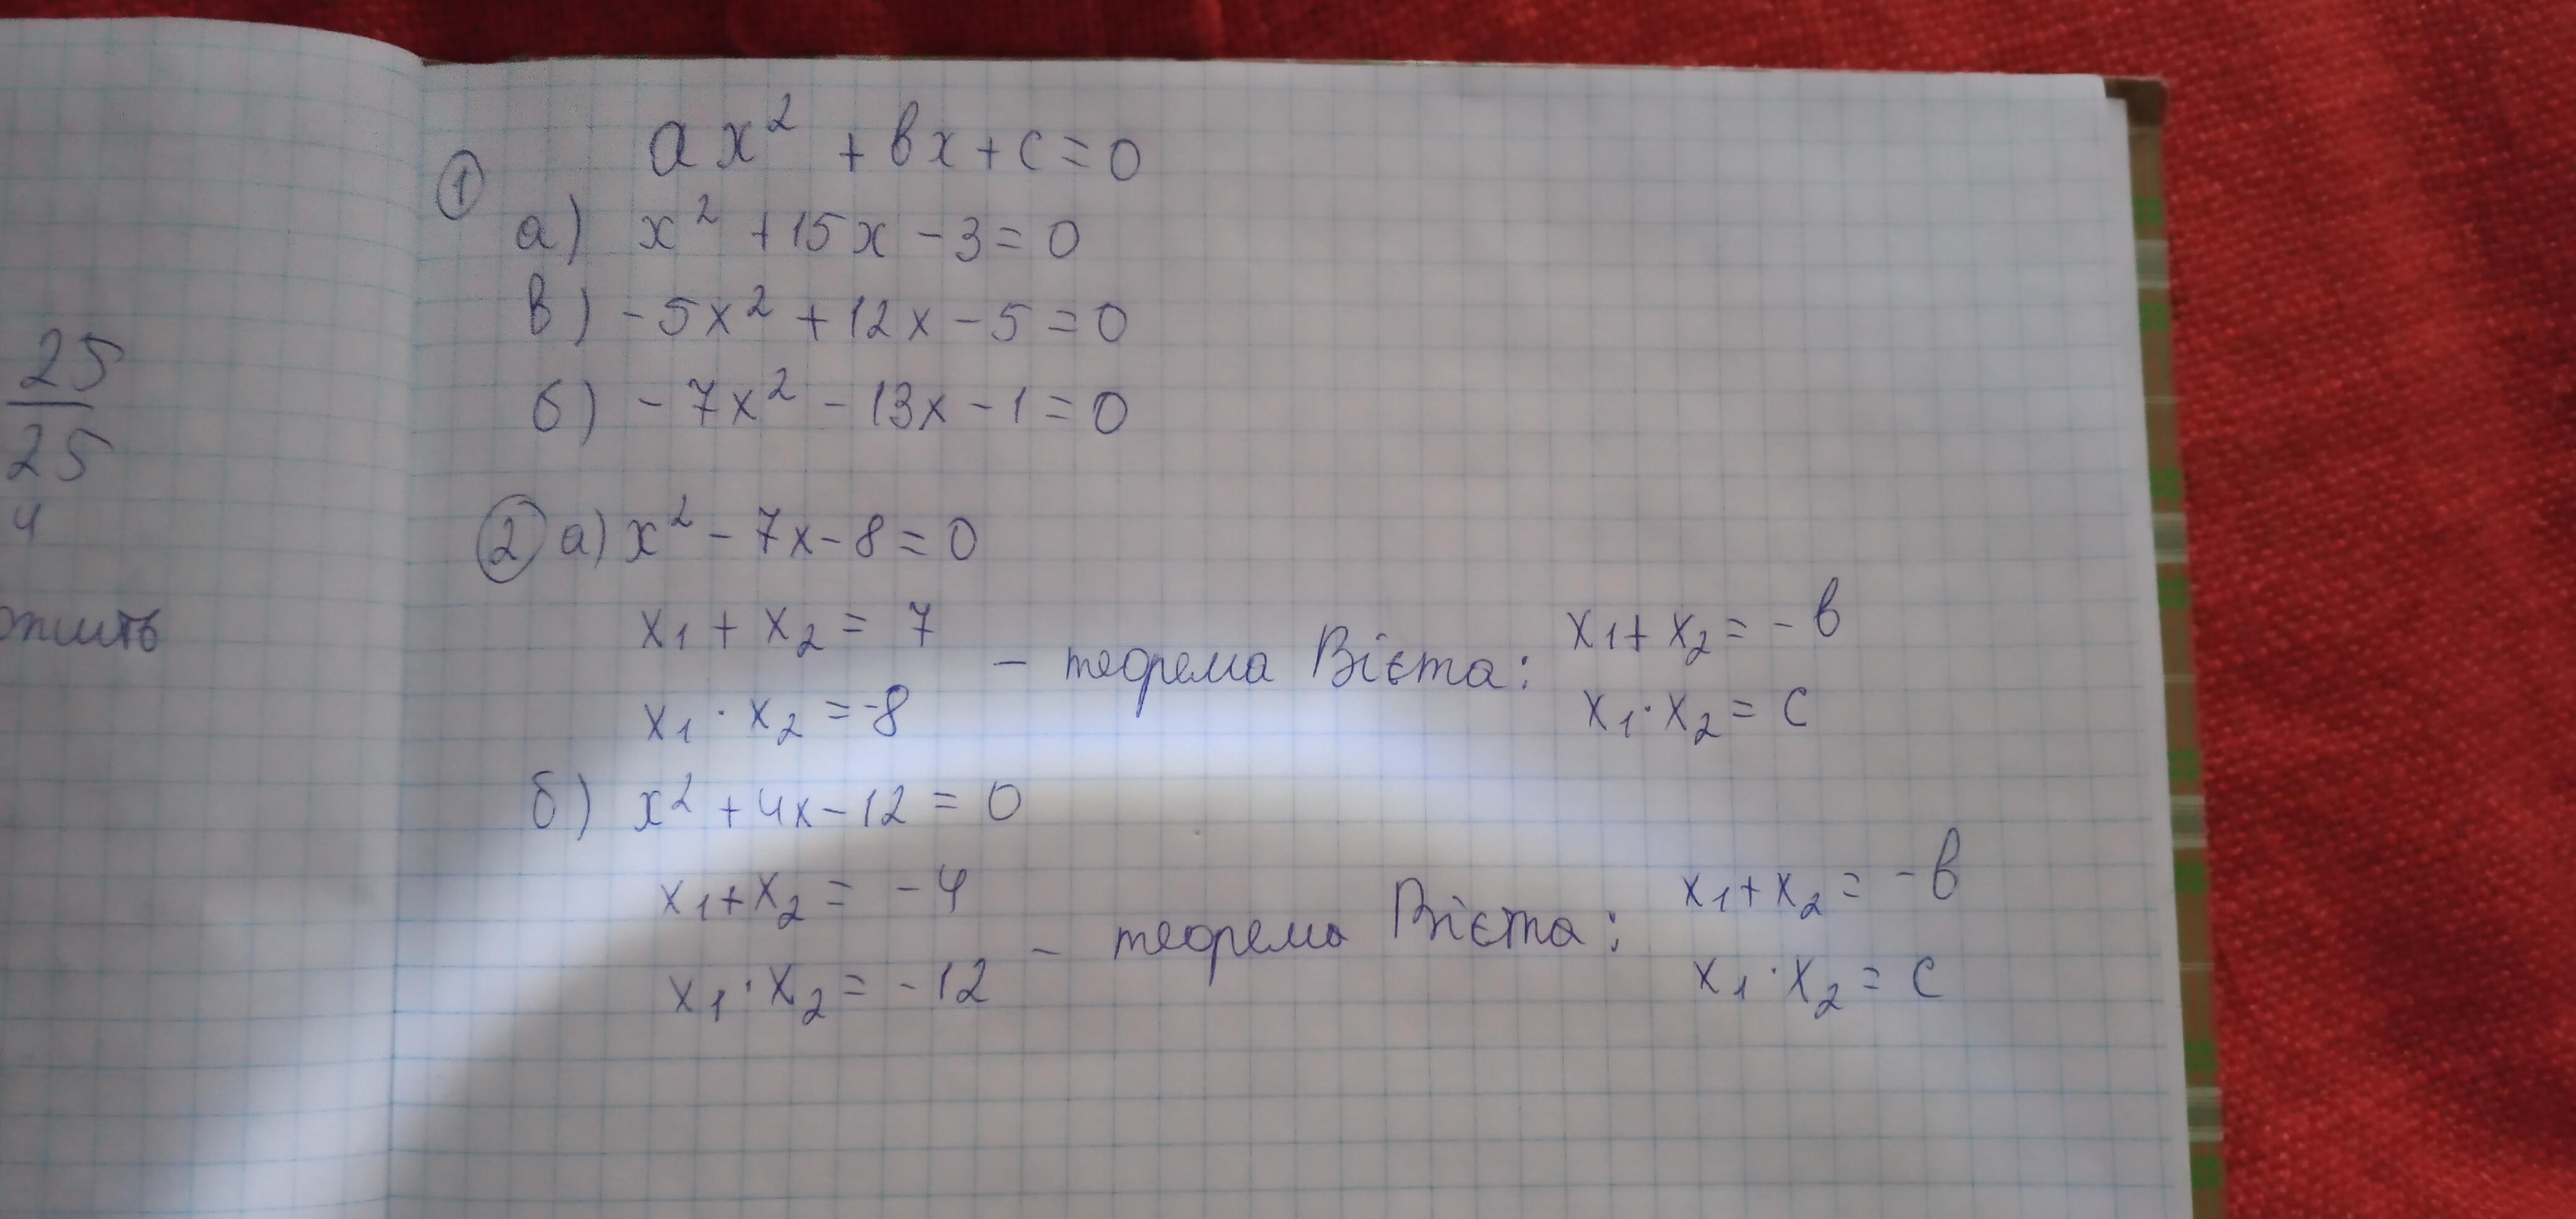 25
25
4
① ax² + bx + c = 0
а) x² + 15x - 3 = 0
в) -5x² + 12x - 5 = 0
б) -7x² - 13x - 1 = 0
② а) x² - 7x - 8 = 0
x₁ + x₂ = 7
x₁ · x₂ = -8
- теорема Вієта:
x₁ + x₂ = -b
x₁ · x₂ = c
б) x² + 4x - 12 = 0
x₁ + x₂ = -4
x₁ · x₂ = -12
- теорема Вієта:
x₁ + x₂ = -b
x₁ · x₂ = c